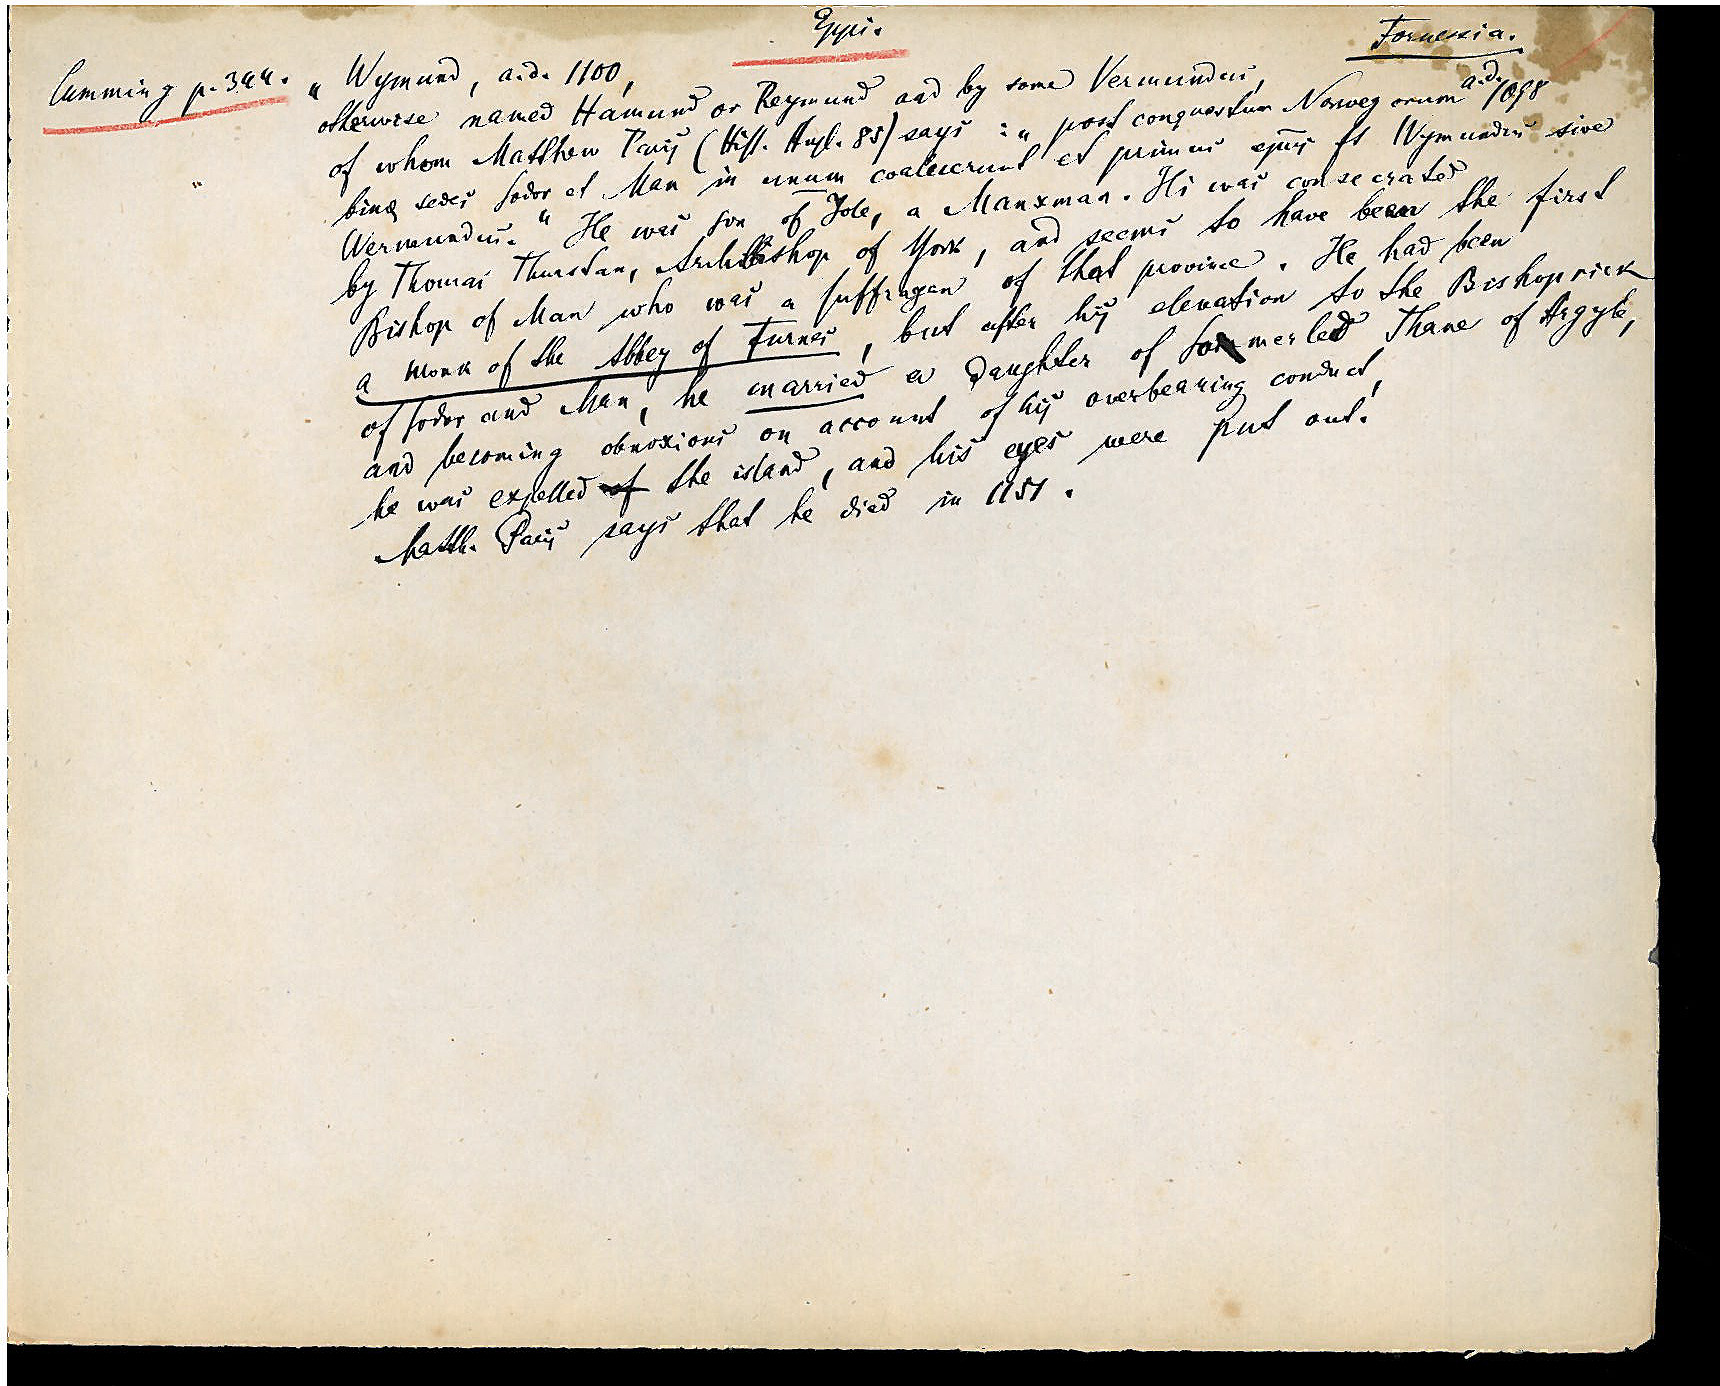 Eppi.
Fornesia.
Cumming p. 344. „ Wymund, a.d. 1100,
otherwise named Hamund or Reymund and by some Vermundus,
of whom Matthew Paris (Hist. Angl. 85) says : „ post conquestum Norwegorum a.d. 1098
binę sedes Sodor et Man in unum coaluerunt et primus epus ft Wymundus sive
Wermundus.“ He was son of Jole, a Manxman. Hi was consecrated
by Thomas Thurstan, Archbishop of York, and seems to have been the first
Bishop of Man who was a suffragan of that province. He had been
a monk of the Abbey of Furnes, but after his elevation to the Bishoprick
of Sodor and Man, he married a daughter of Sommerled Thane of Argyle,
and becoming obnoxious on account of his overbearing conduct,
he was expelled of the island, and his eyes were put out.
Matth. Paris says that he died in 1151.